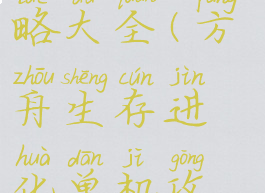 lüè dà quán fāng
略大全(方
zhōu shēng cún jìn
舟生存进
huà dān jī gōng
化单机攻